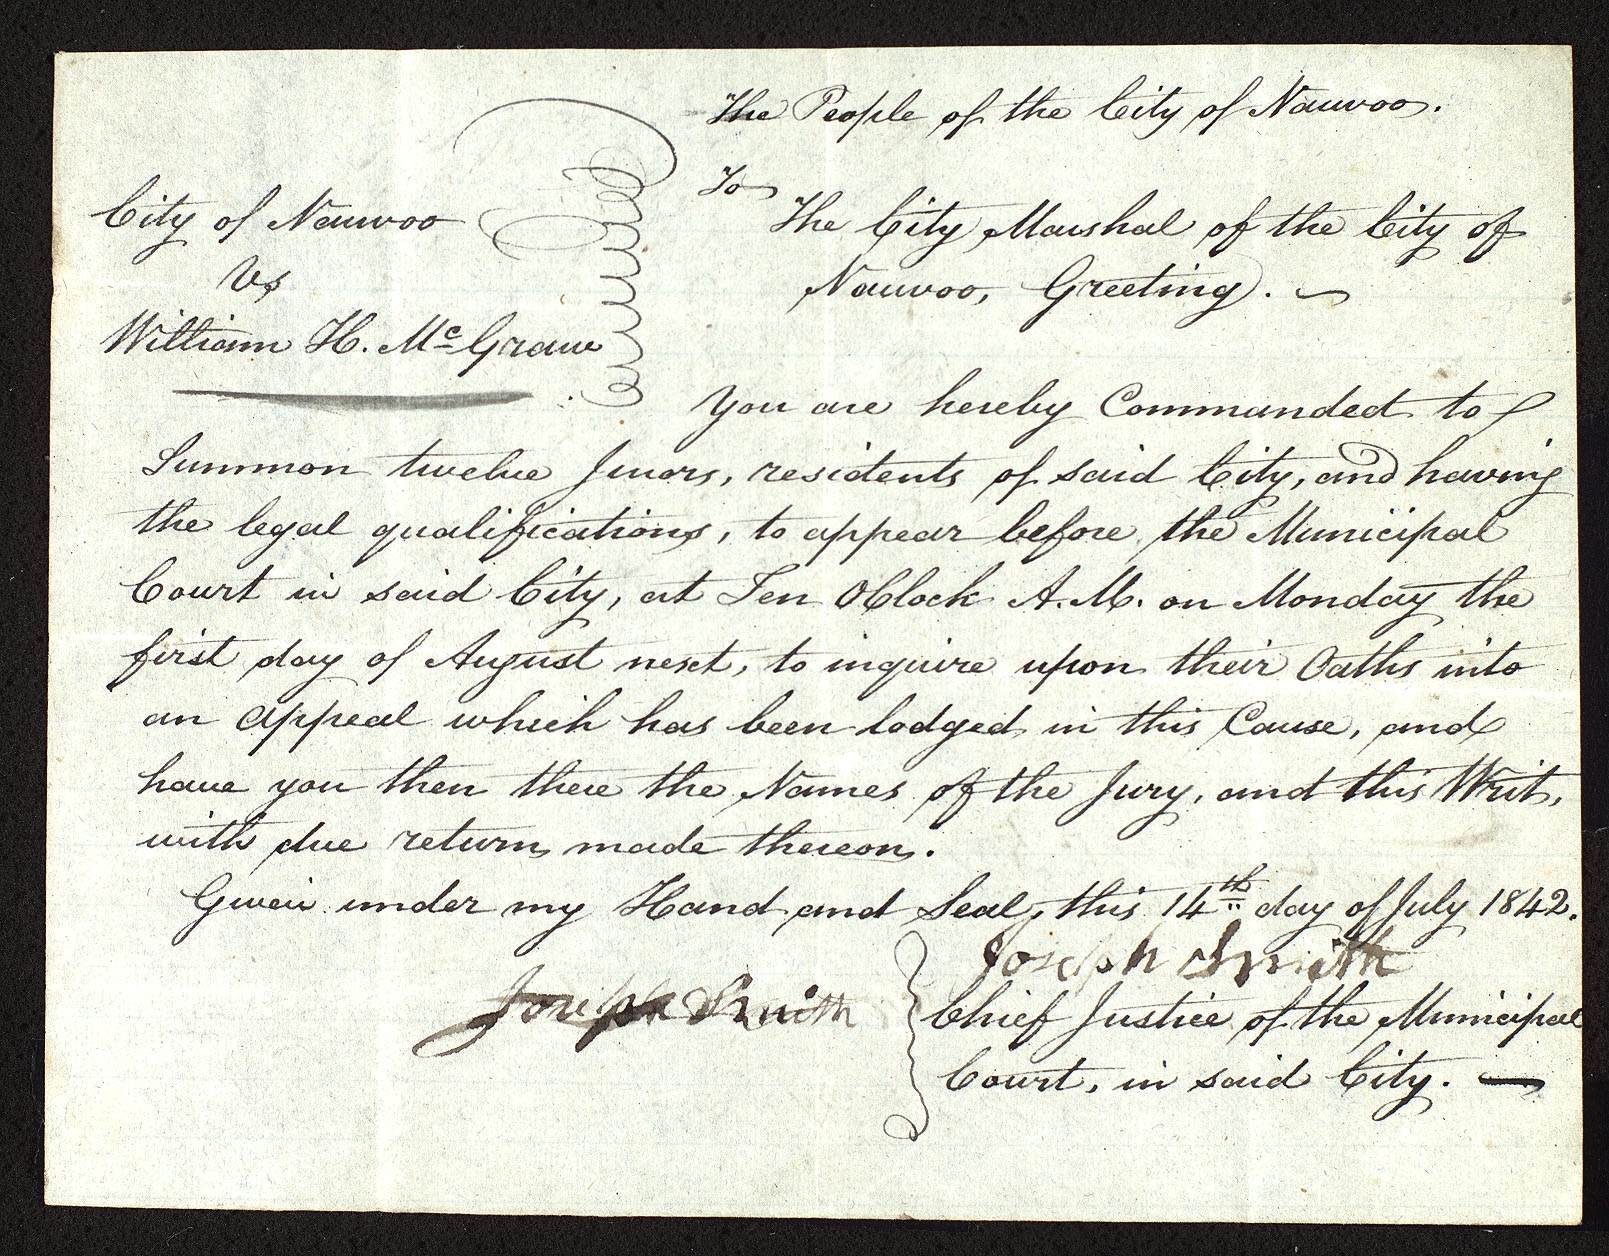 The People of the City of Nauvoo.
To
The City Marshal of the City of
Nauvoo, Greeting.
City of Nauvoo
Vs
William H. Mc Graw
You are hereby Commanded to
Summon twelve Jurors, residents of said City, and having
the legal qualifications, to appear before the Municipal
Court in said City, at Ten OClock A.M. on Monday the
first day of August next, to inquire upon their Oaths into
an appeal which has been lodged in this Cause, and
have you then there the Names of the Jury, and this Writ,
with due return made thereon.
Given under my Hand and Seal, this 14th day of July 1842.
Joseph Smith
Joseph Smith
Chief Justice of the Municipal
Court, in said City.